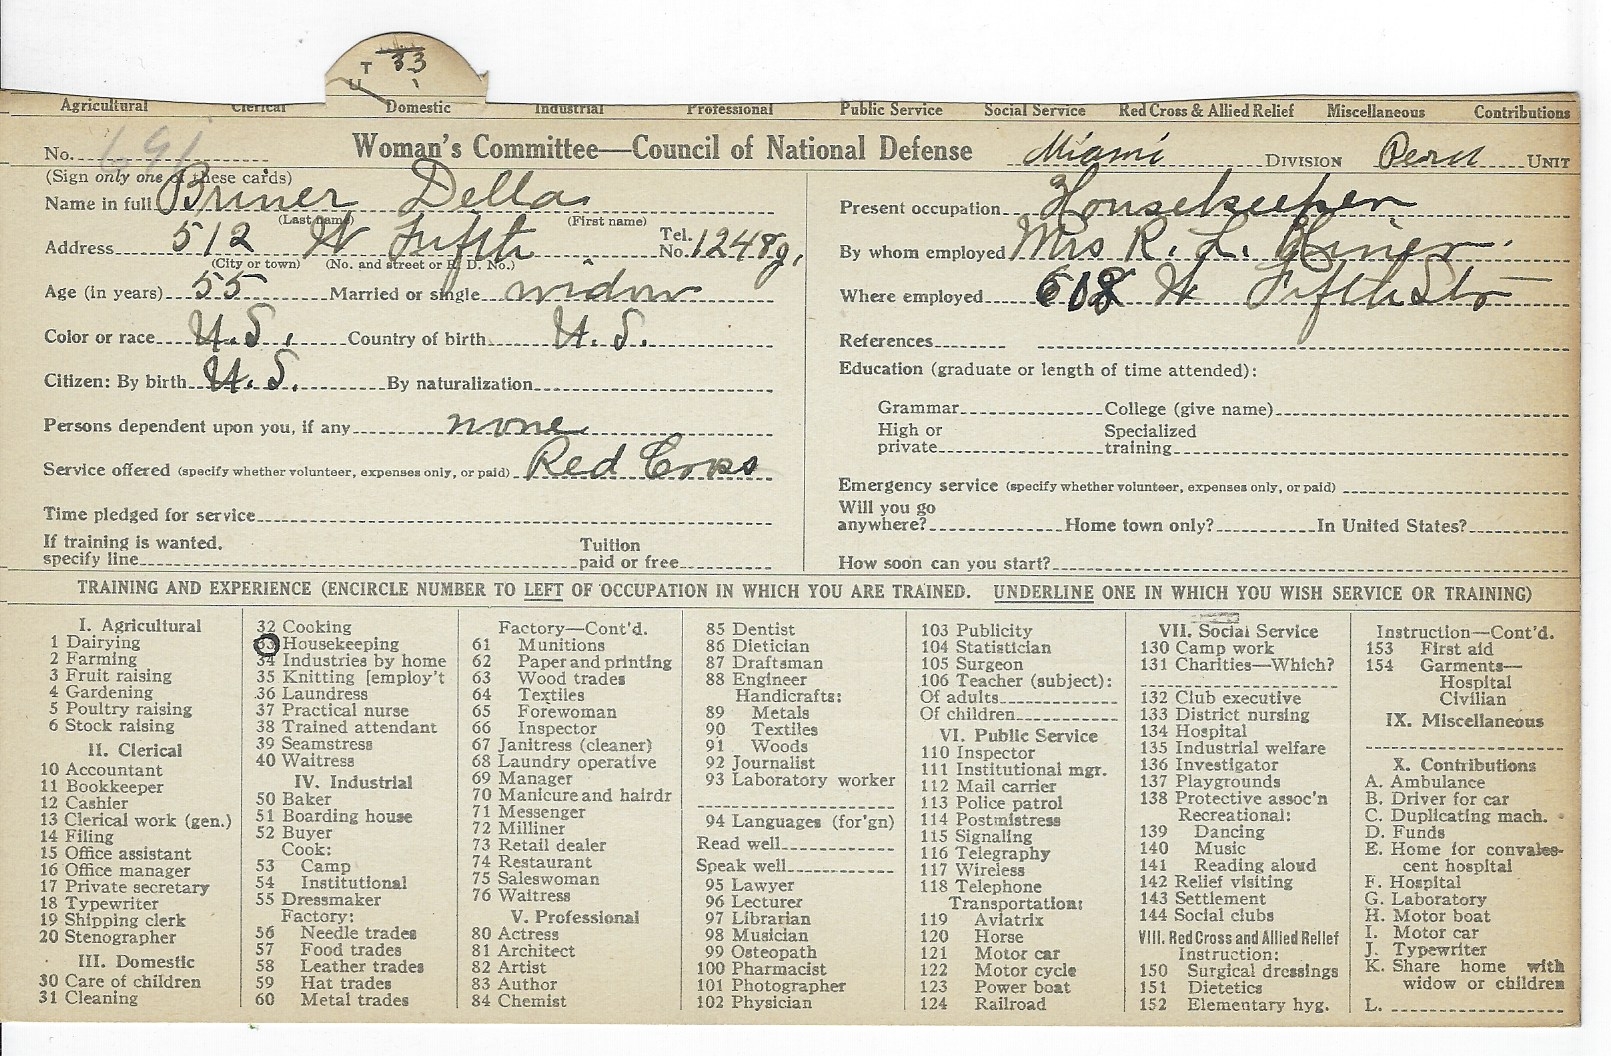 T 33
U
Agricultural Clerical Domestic Industrial Professional Public Service Social Service Red Cross & Allied Relief Miscellaneous Contributions
No. 691 Woman's Committee—Council of National Defense Miami DIVISION Peru UNIT
(Sign only one of these cards)
Name in full Briner Della
(Last name) (First name)
Address 512 W Fifth Tel. No. 1248g,
(City or town) (No. and street or R. D. No.)
Age (in years) 55 Married or single widow
Color or race U.S. Country of birth U.S.
Citizen: By birth U.S. By naturalization
Persons dependent upon you, if any none
Service offered (specify whether volunteer, expenses only, or paid) Red Cross
Time pledged for service
If training is wanted, specify line Tuition paid or free
Present occupation Housekeeper
By whom employed Mrs R. L.
Where employed 608 W Fifth St
References
Education (graduate or length of time attended):
Grammar College (give name)
High or private Specialized training
Emergency service (specify whether volunteer, expenses only, or paid)
Will you go anywhere? Home town only? In United States?
How soon can you start?
TRAINING AND EXPERIENCE (ENCIRCLE NUMBER TO LEFT OF OCCUPATION IN WHICH YOU ARE TRAINED. UNDERLINE ONE IN WHICH YOU WISH SERVICE OR TRAINING)
I. Agricultural
1 Dairying
2 Farming
3 Fruit raising
4 Gardening
5 Poultry raising
6 Stock raising
II. Clerical
10 Accountant
11 Bookkeeper
12 Cashier
13 Clerical work (gen.)
14 Filing
15 Office assistant
16 Office manager
17 Private secretary
18 Typewriter
19 Shipping clerk
20 Stenographer
III. Domestic
30 Care of children
31 Cleaning
32 Cooking
33 Housekeeping
34 Industries by home
35 Knitting [employ't
36 Laundress
37 Practical nurse
38 Trained attendant
39 Seamstress
40 Waitress
IV. Industrial
50 Baker
51 Boarding house
52 Buyer
Cook:
53 Camp
54 Institutional
55 Dressmaker
Factory:
56 Needle trades
57 Food trades
58 Leather trades
59 Hat trades
60 Metal trades
Factory—Cont'd.
61 Munitions
62 Paper and printing
63 Wood trades
64 Textiles
65 Forewoman
66 Inspector
67 Janitress (cleaner)
68 Laundry operative
69 Manager
70 Manicure and hairdr
71 Messenger
72 Milliner
73 Retail dealer
74 Restaurant
75 Saleswoman
76 Waitress
V. Professional
80 Actress
81 Architect
82 Artist
83 Author
84 Chemist
85 Dentist
86 Dietician
87 Draftsman
88 Engineer
Handicrafts:
89 Metals
90 Textiles
91 Woods
92 Journalist
93 Laboratory worker
94 Languages (for'gn)
Read well
Speak well
95 Lawyer
96 Lecturer
97 Librarian
98 Musician
99 Osteopath
100 Pharmacist
101 Photographer
102 Physician
103 Publicity
104 Statistician
105 Surgeon
106 Teacher (subject):
Of adults
Of children
VI. Public Service
110 Inspector
111 Institutional mgr.
112 Mail carrier
113 Police patrol
114 Postmistress
115 Signaling
116 Telegraphy
117 Wireless
118 Telephone
Transportation:
119 Aviatrix
120 Horse
121 Motor car
122 Motor cycle
123 Power boat
124 Railroad
VII. Social Service
130 Camp work
131 Charities—Which?
132 Club executive
133 District nursing
134 Hospital
135 Industrial welfare
136 Investigator
137 Playgrounds
138 Protective assoc'n
Recreational:
139 Dancing
140 Music
141 Reading aloud
142 Relief visiting
143 Settlement
144 Social clubs
VIII. Red Cross and Allied Relief
Instruction:
150 Surgical dressings
151 Dietetics
152 Elementary hyg.
Instruction—Cont'd.
153 First aid
154 Garments—
Hospital
Civilian
IX. Miscellaneous
X. Contributions
A. Ambulance
B. Driver for car
C. Duplicating mach.
D. Funds
E. Home for convales-
cent hospital
F. Hospital
G. Laboratory
H. Motor boat
I. Motor car
J. Typewriter
K. Share home with
widow or children
L.